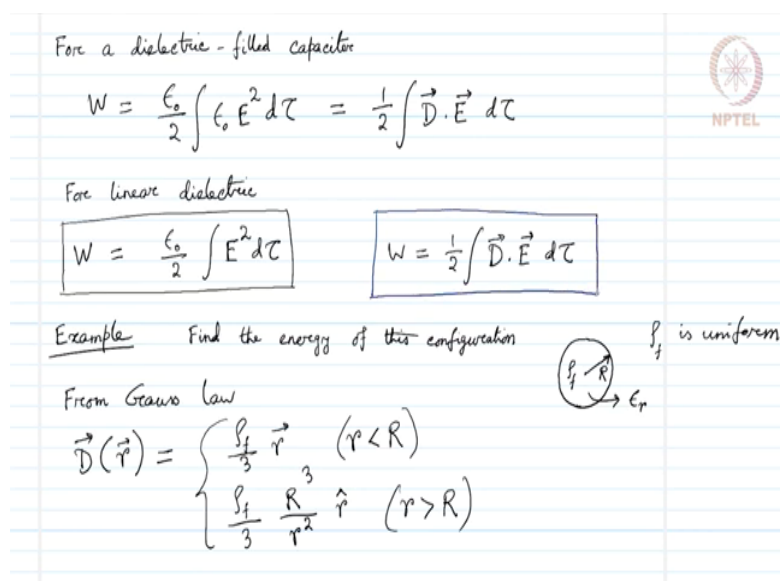 For a dielectric - filled capacitor
NPTEL
W = ϵ₀/2 ∫ ϵᵣ E² dτ = 1/2 ∫ D⃗ . E⃗ dτ
For linear dielectric
W = ϵ₀/2 ∫ E² dτ    W = 1/2 ∫ D⃗ . E⃗ dτ
Example Find the energy of this configuration ρ_f is uniform
ρ_f R ϵᵣ
From Gauss law
D⃗(r⃗) = { ρ_f/3 r⃗ (r<R)
ρ_f/3 R³/r² r̂ (r>R)